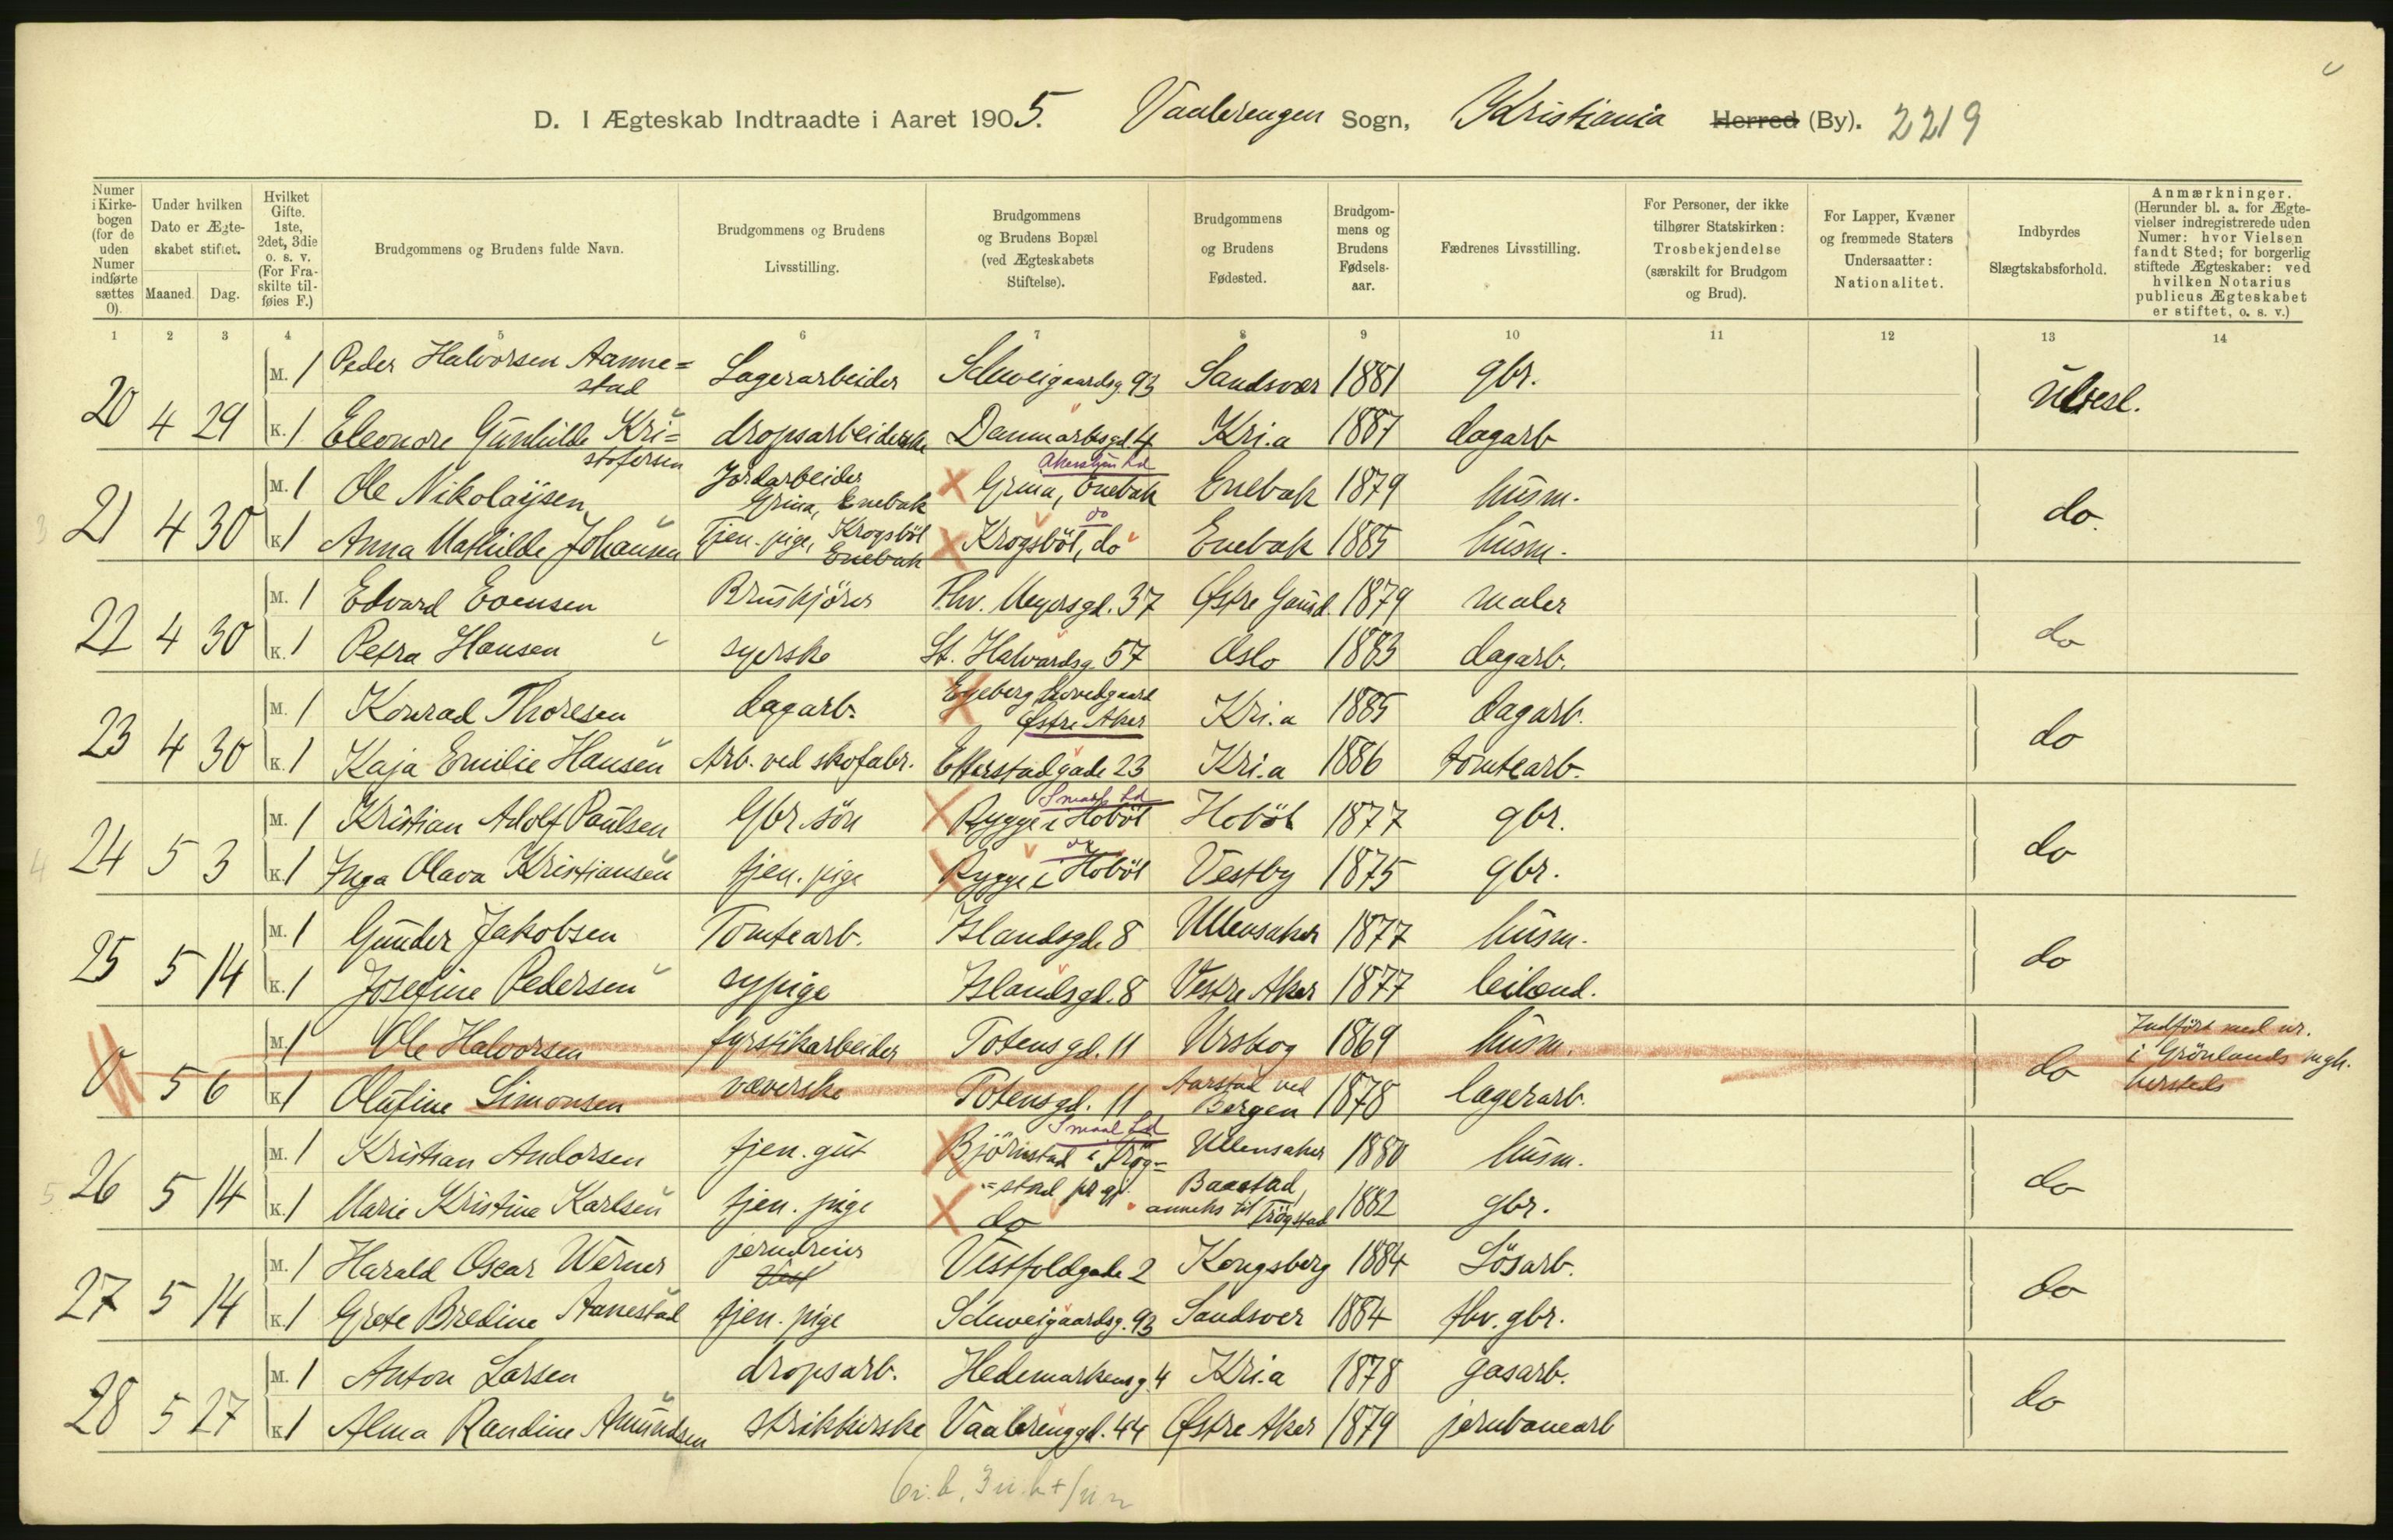 D. I Ægteskab Indtraadte i Aaret 1905. Vaalerengen Sogn, Kristiania Herred (By). 2219
Numer i Kirke-bogen (for de uden Numer indførte sættes 0).
Under hvilken Dato er Ægte-skabet stiftet.
Maaned. Dag.
Hvilket Gifte. 1ste, 2det, 3die o. s. v. (For Fra-skilte til-føies F.)
Brudgommens og Brudens fulde Navn.
Brudgommens og Brudens Livsstilling.
Brudgommens og Brudens Bopæl (ved Ægteskabets Stiftelse).
Brudgommens og Brudens Fødested.
Brudgom-mens og Brudens Fødsels-aar.
Fædrenes Livsstilling.
For Personer, der ikke tilhører Statskirken: Trosbekjendelse (særskilt for Brudgom og Brud).
For Lapper, Kvæner og fremmede Staters Undersaatter: Nationalitet.
Indbyrdes Slægtskabsforhold.
Anmærkninger. (Herunder bl. a. for Ægte-vielser indregistrerede uden Numer: hvor Vielsen fandt Sted; for borgerlig stiftede Ægteskaber: ved hvilken Notarius publicus Ægteskabet er stiftet, o. s. v.)
1 2 3 4 5 6 7 8 9 10 11 12 13 14
M. 1 Peder Halvorsen Aanne=stad Lagerarbeider Schweigaardsg. 93 Sandsvær 1881 gbr.
20 4 29 K. 1 Eleonore Gunhilde Kri=stofersen dropsarbeiderske Danmarksgd. 4 Kri.a 1887 dagarb Ubesl.
M. 1 Ole Nikolaysen Jordarbeider Grina, Enebak Akershus Ld Grina, Enebak Enebak 1879 husm.
3 21 4 30 K. 1 Anna Mathilde Johansen Tjen. pige, Krogsböl Enebak Krogsböl, do do Enebak 1885 husm. do.
M. 1 Edvard Evensen Bruskjörer Thv. Meyersgd. 37 Østre Gausd. 1879 maler
22 4 30 K. 1 Petra Hansen syerske St. Halvardsg. 57 Oslo 1883 dagarb. do
M. 1 Konrad Thoresen dagarb. Egeberg Hovedgaard Østre Aker Kri.a 1885 dagarb.
23 4 30 K. 1 Kaja Emilie Hansen Arb. ved skofabr. Etterstadgade 23 Kri.a 1886 tomtearb. do
M. 1 Kristian Adolf Paulsen Gbr. sön Smaal. Ld Rygge i Hoböl Hoböl 1877 gbr.
4 24 5 3 K. 1 Inga Olava Kristiansen tjen. pige do Rygge i Hoböl Vestby 1875 gbr. do
M. 1 Gunder Jakobsen Tomtearb. Islandsgd. 8 Ullensaker 1877 husm.
25 5 14 K. 1 Josefine Pedersen sypige Islandsgd. 8 Vestre Aker 1877 leilend. do
M. 1 Ole Halvorsen fyrstikarbeider Totensgd. 11 Urskog 1869 husm.
0 5 6 K. 1 Olufine Simonsen væverske Totensgd. 11 Aarstad ved Bergen 1878 lagerarb. do Indfört med nr. i Grönlands mgh.
M. 1 Kristian Andorsen tjen. gut Smaal. Ld Björnstad i Trög=stad prgj. Ullensaker 1880 husm.
5 26 5 14 K. 1 Marie Kristine Karlsen tjen. pige do Baastad, anneks til Trögstad 1882 gbr. do
M. 1 Harald Oscar Werner jerndreier Vestfoldgade 2 Kongsberg 1884 Lösarb.
27 5 14 K. 1 Grete Bredine Aanestad tjen. pige Schweigaardsg. 93 Sandsver 1884 fhv. gbr. do
M. 1 Anton Larsen dropsarb. Hedemarkensg. 4 Kri.a 1878 gasarb.
28 5 27 K. 1 Alma Randine Amundsen strikkerske Vaalerenggd. 44 Østre Aker 1879 jernbanearb do